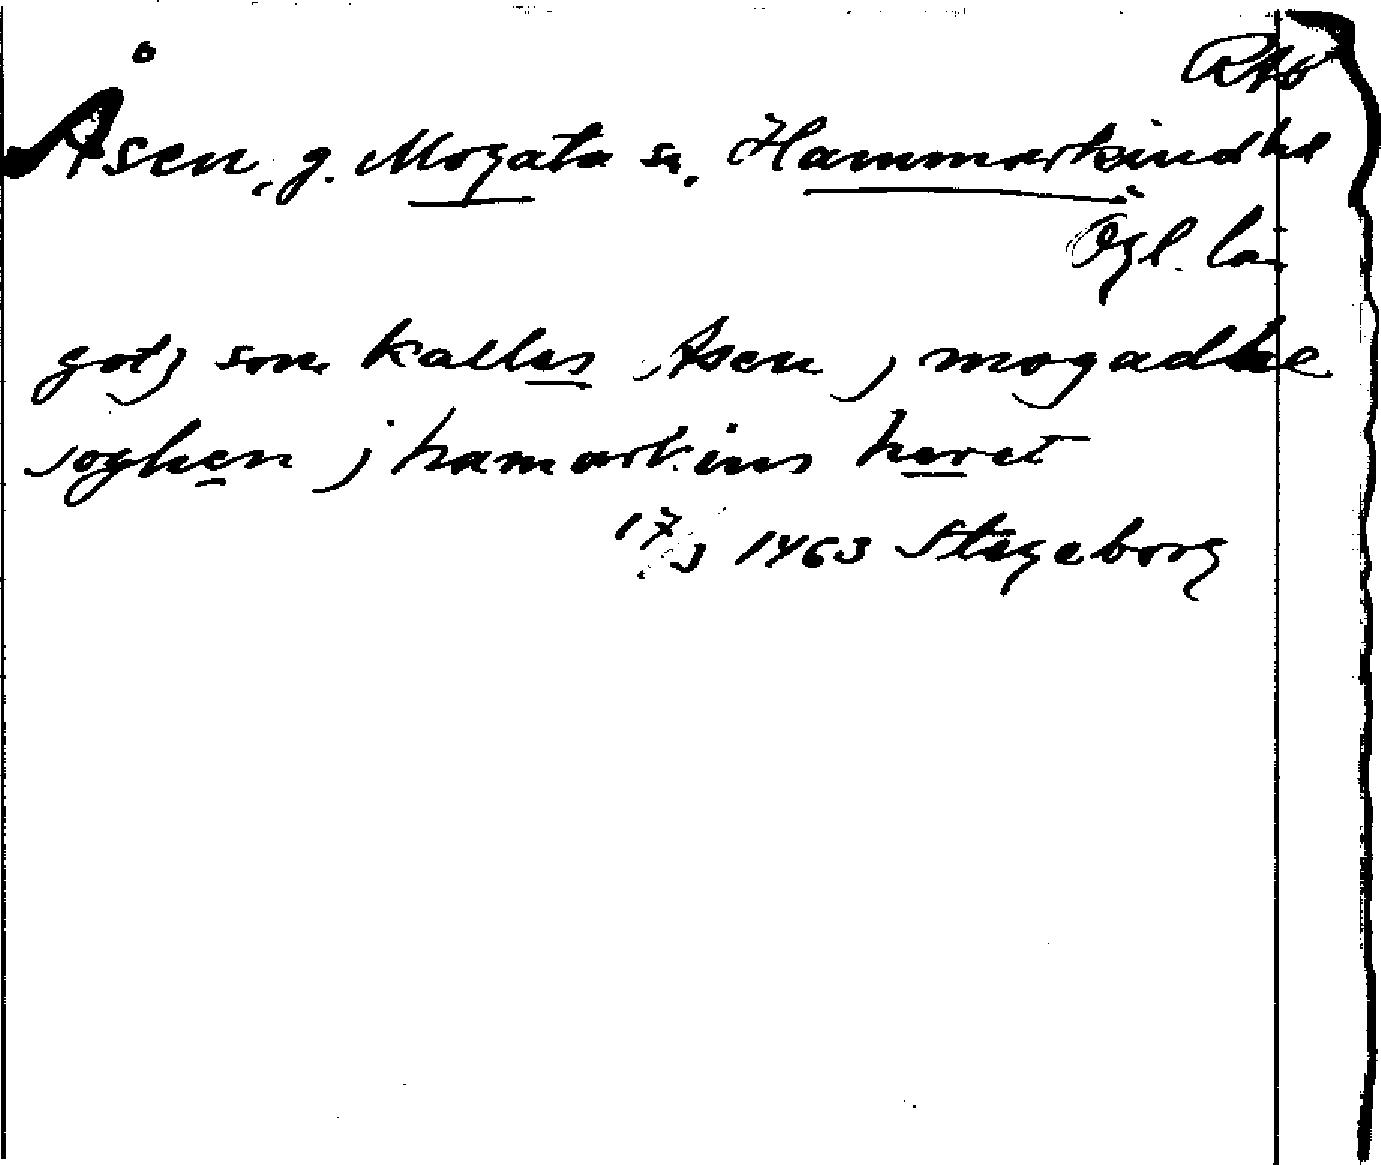 RAp
Åsen, g. Mogata sn, Hammarkinds hd
Ögl. län
gotz som kalles Asen j mogadhe
soghen j hamarkins heret
17/3 1463 Stegeborg